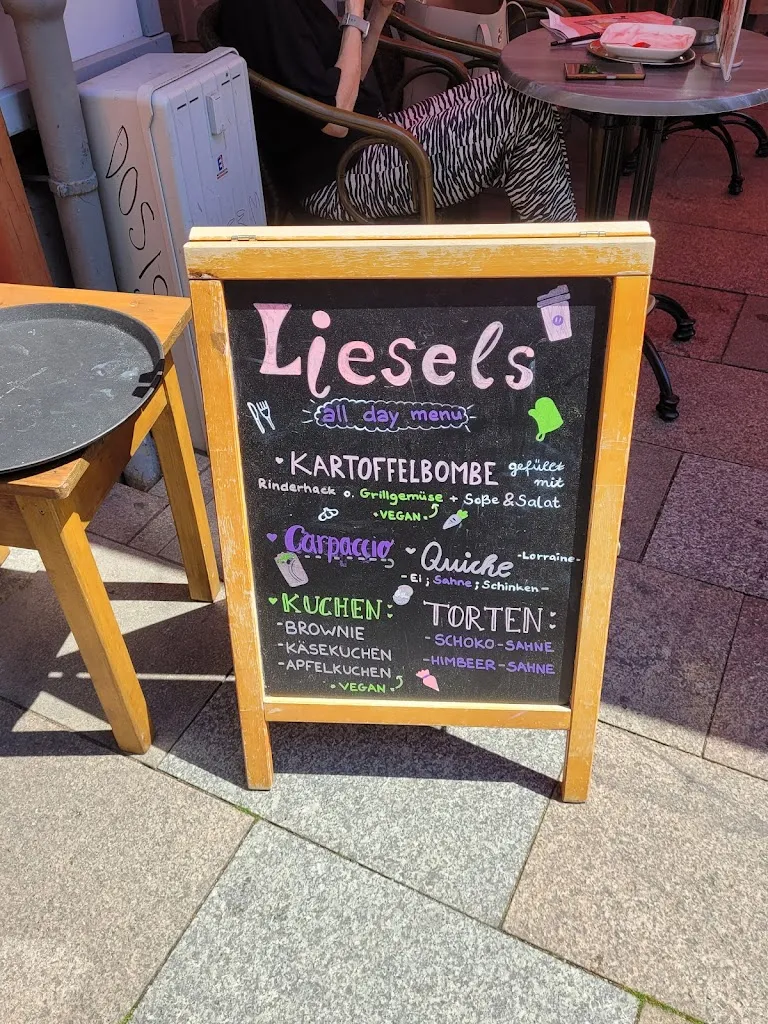 Liesels
all day menu
♥ KARTOFFELBOMBE gefüllt mit
Rinderhack o. Grillgemüse + Soße & Salat
• VEGAN •
♥ Carpaccio
♥ Quiche -Lorraine-
- Ei ; Sahne ; Schinken -
♥ KUCHEN:
- BROWNIE
- KÄSEKUCHEN
- APFELKUCHEN
• VEGAN •
TORTEN:
- SCHOKO-SAHNE
- HIMBEER-SAHNE